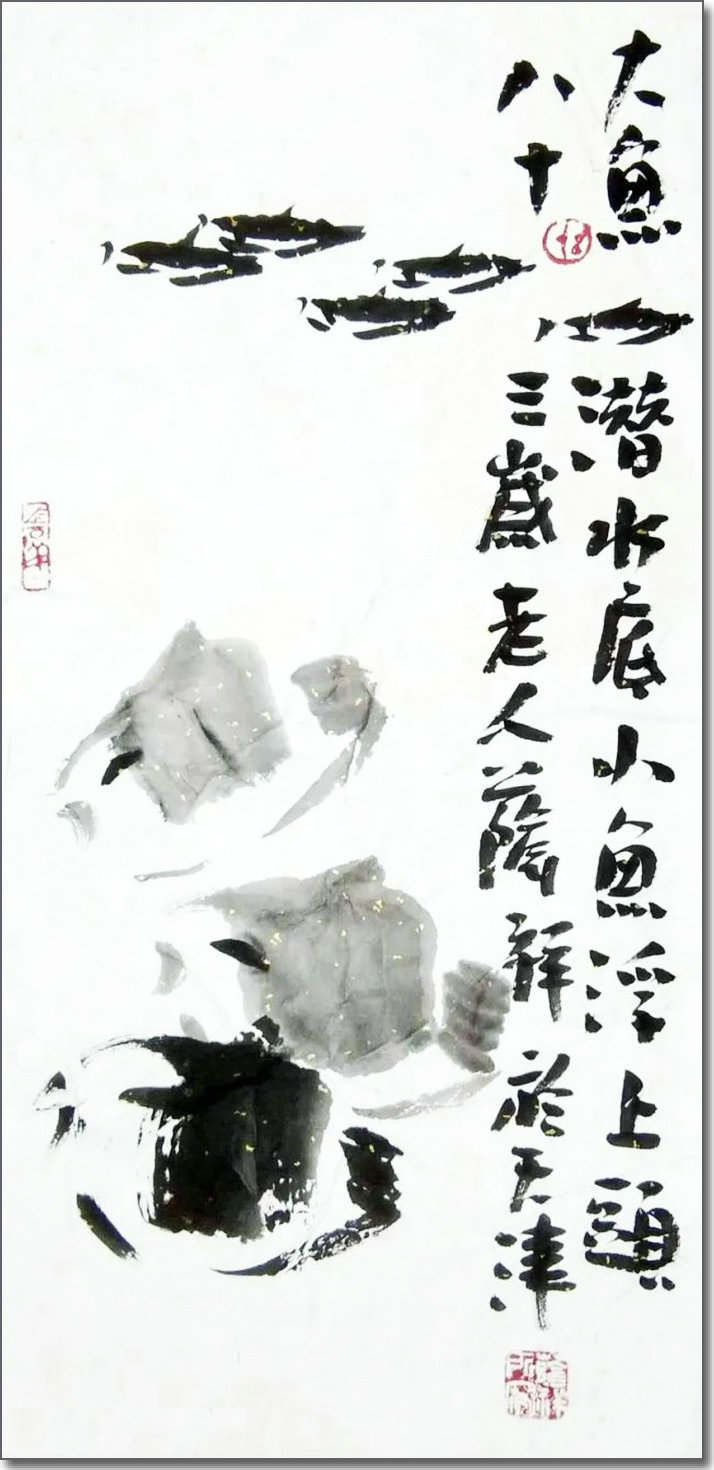 大魚潜水底小魚浮上頭
八十三歲老人蔭祥於天津